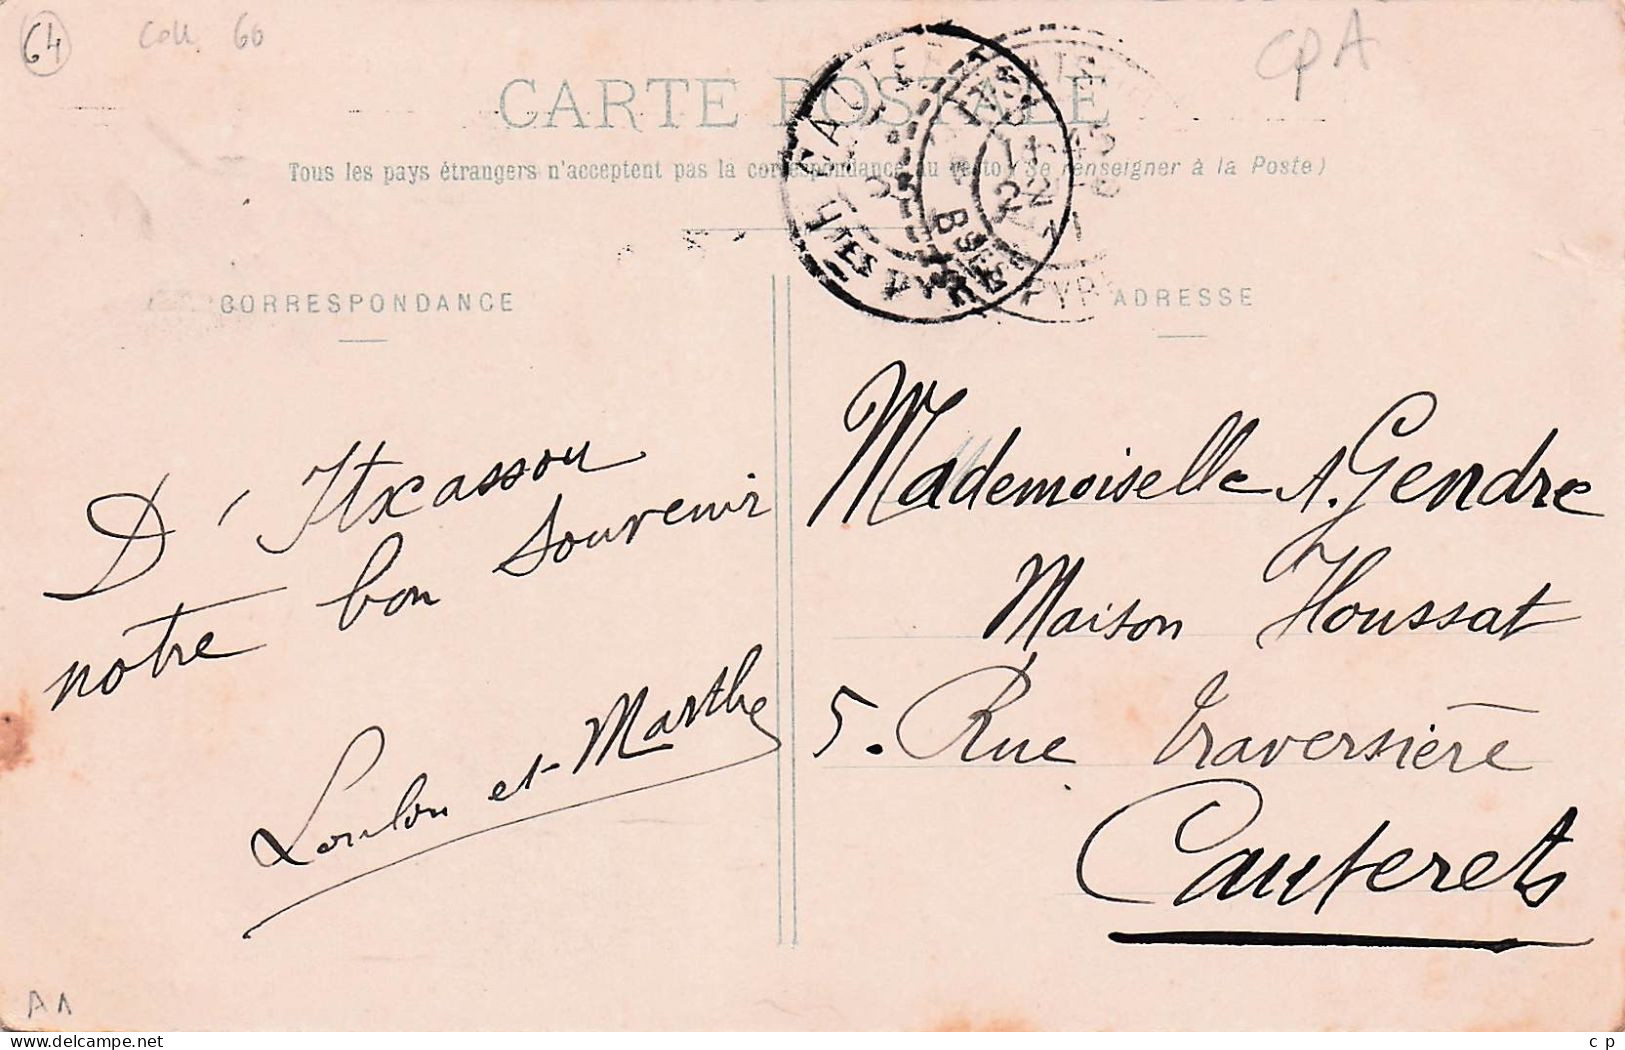 64
Coll 60
CPA
CARTE POSTALE
Tous les pays étrangers n'acceptent pas la correspondance au recto (Se renseigner à la Poste)
CORRESPONDANCE
D' Itxassou
notre bon souvenir
Loulou et Marthe
ADRESSE
Mademoiselle A. Gendre
Maison Houssat
5. Rue Traversière
Cauterets
A1
delcampe.net
c p